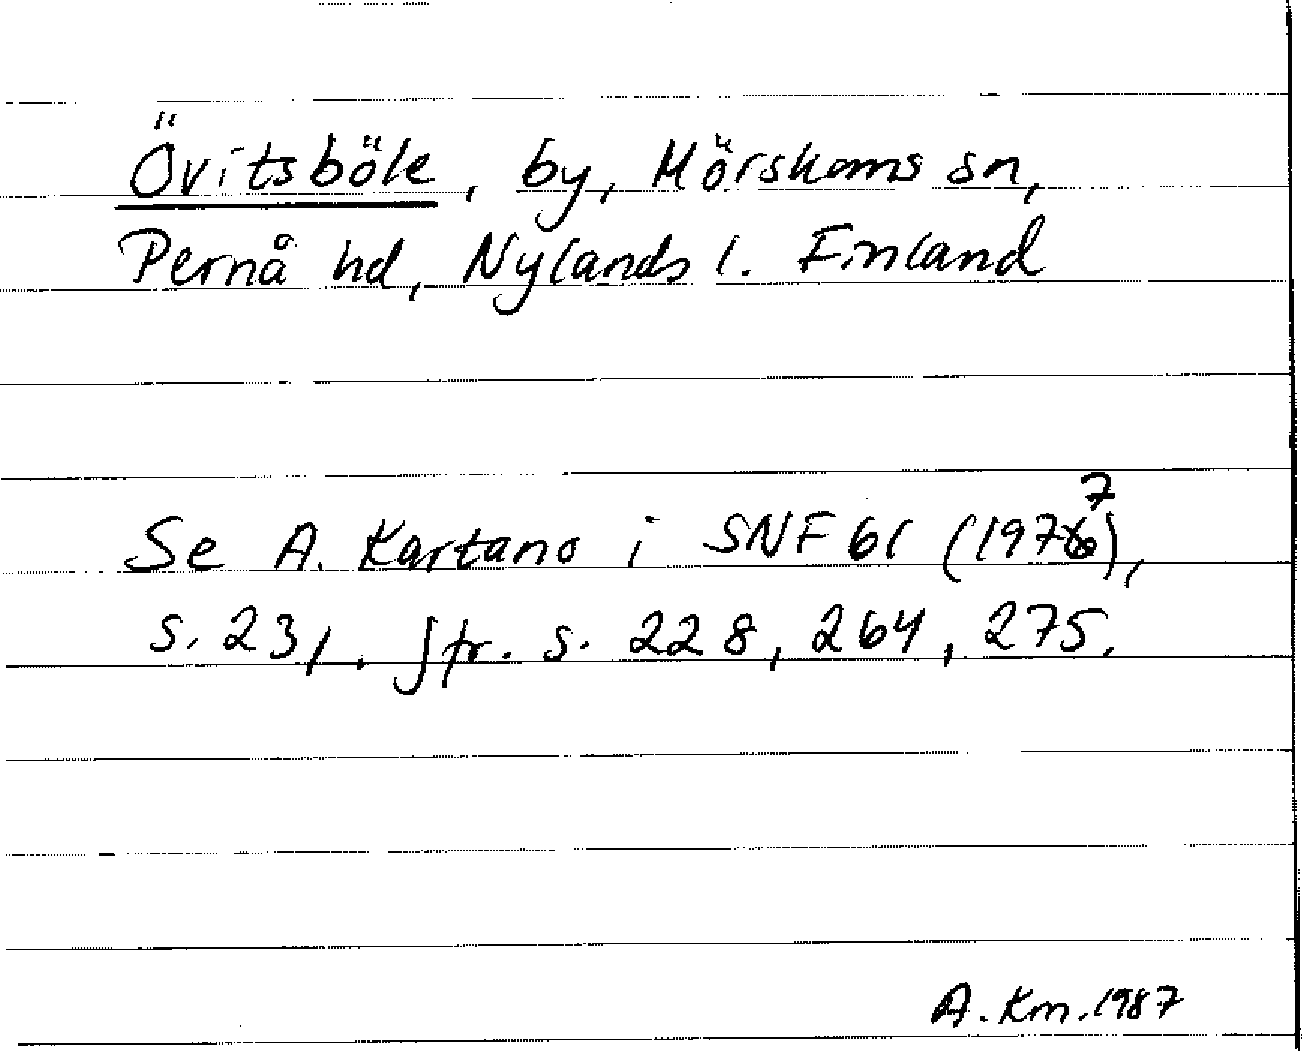 Övitsböle, by, Mörskoms sn,
Pernå hd, Nylands l. Finland
Se A. Kartano i SNF 61 (1977),
s. 231. Jfr. s. 228, 264, 275.
A. Km. 1987